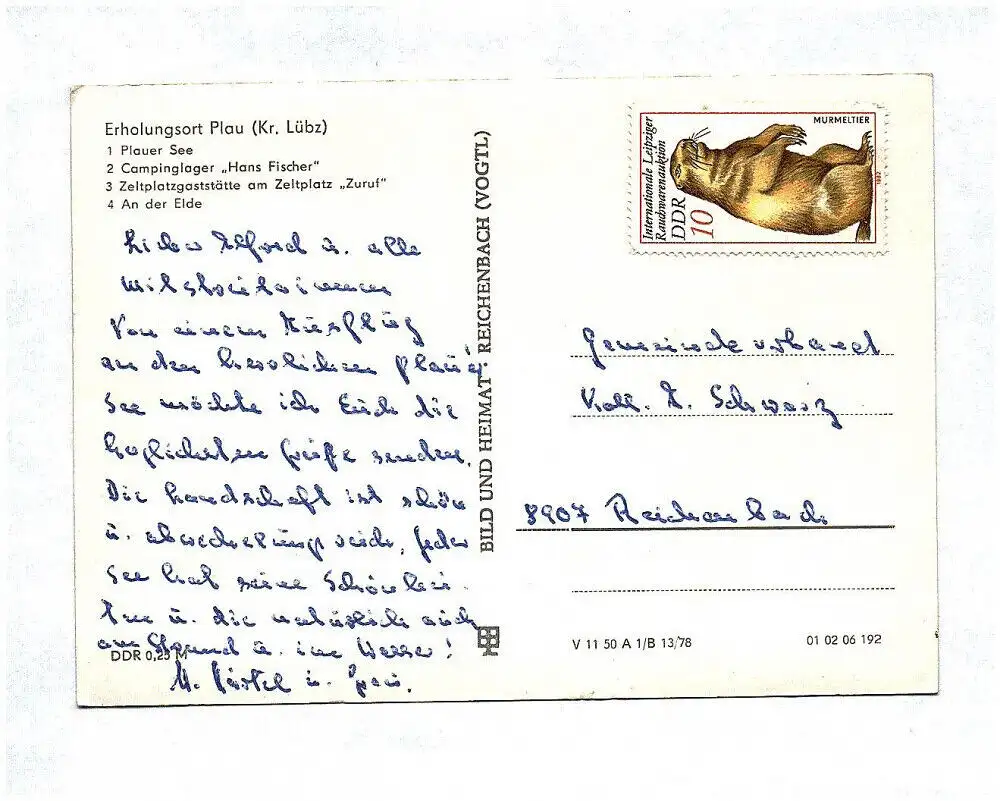 Erholungsort Plau (Kr. Lübz)
1 Plauer See
2 Campinglager „Hans Fischer“
3 Zeltplatzgaststätte am Zeltplatz „Zuruf“
4 An der Elde
Lieber u. alle
Mitarbeiterinnen
Von einem Ausflug
an den herrlichen Plauer
See möchte ich Euch die
herzlichsten Grüße senden.
Die Landschaft ist schön
u. abwechslungsreich, jeder
See hat seine Schönhei-
ten u. die natürlich auch
am Strand u. im Wasser!
M. u.
DDR 0,25 M
BILD UND HEIMAT · REICHENBACH (VOGTL)
Internationale Leipziger
Rauchwarenauktion
DDR
10
MURMELTIER
1982
Gemeindeverband
Koll. E. Schwarz
8907 Reichenbach
V 11 50 A 1/B 13/78
01 02 06 192